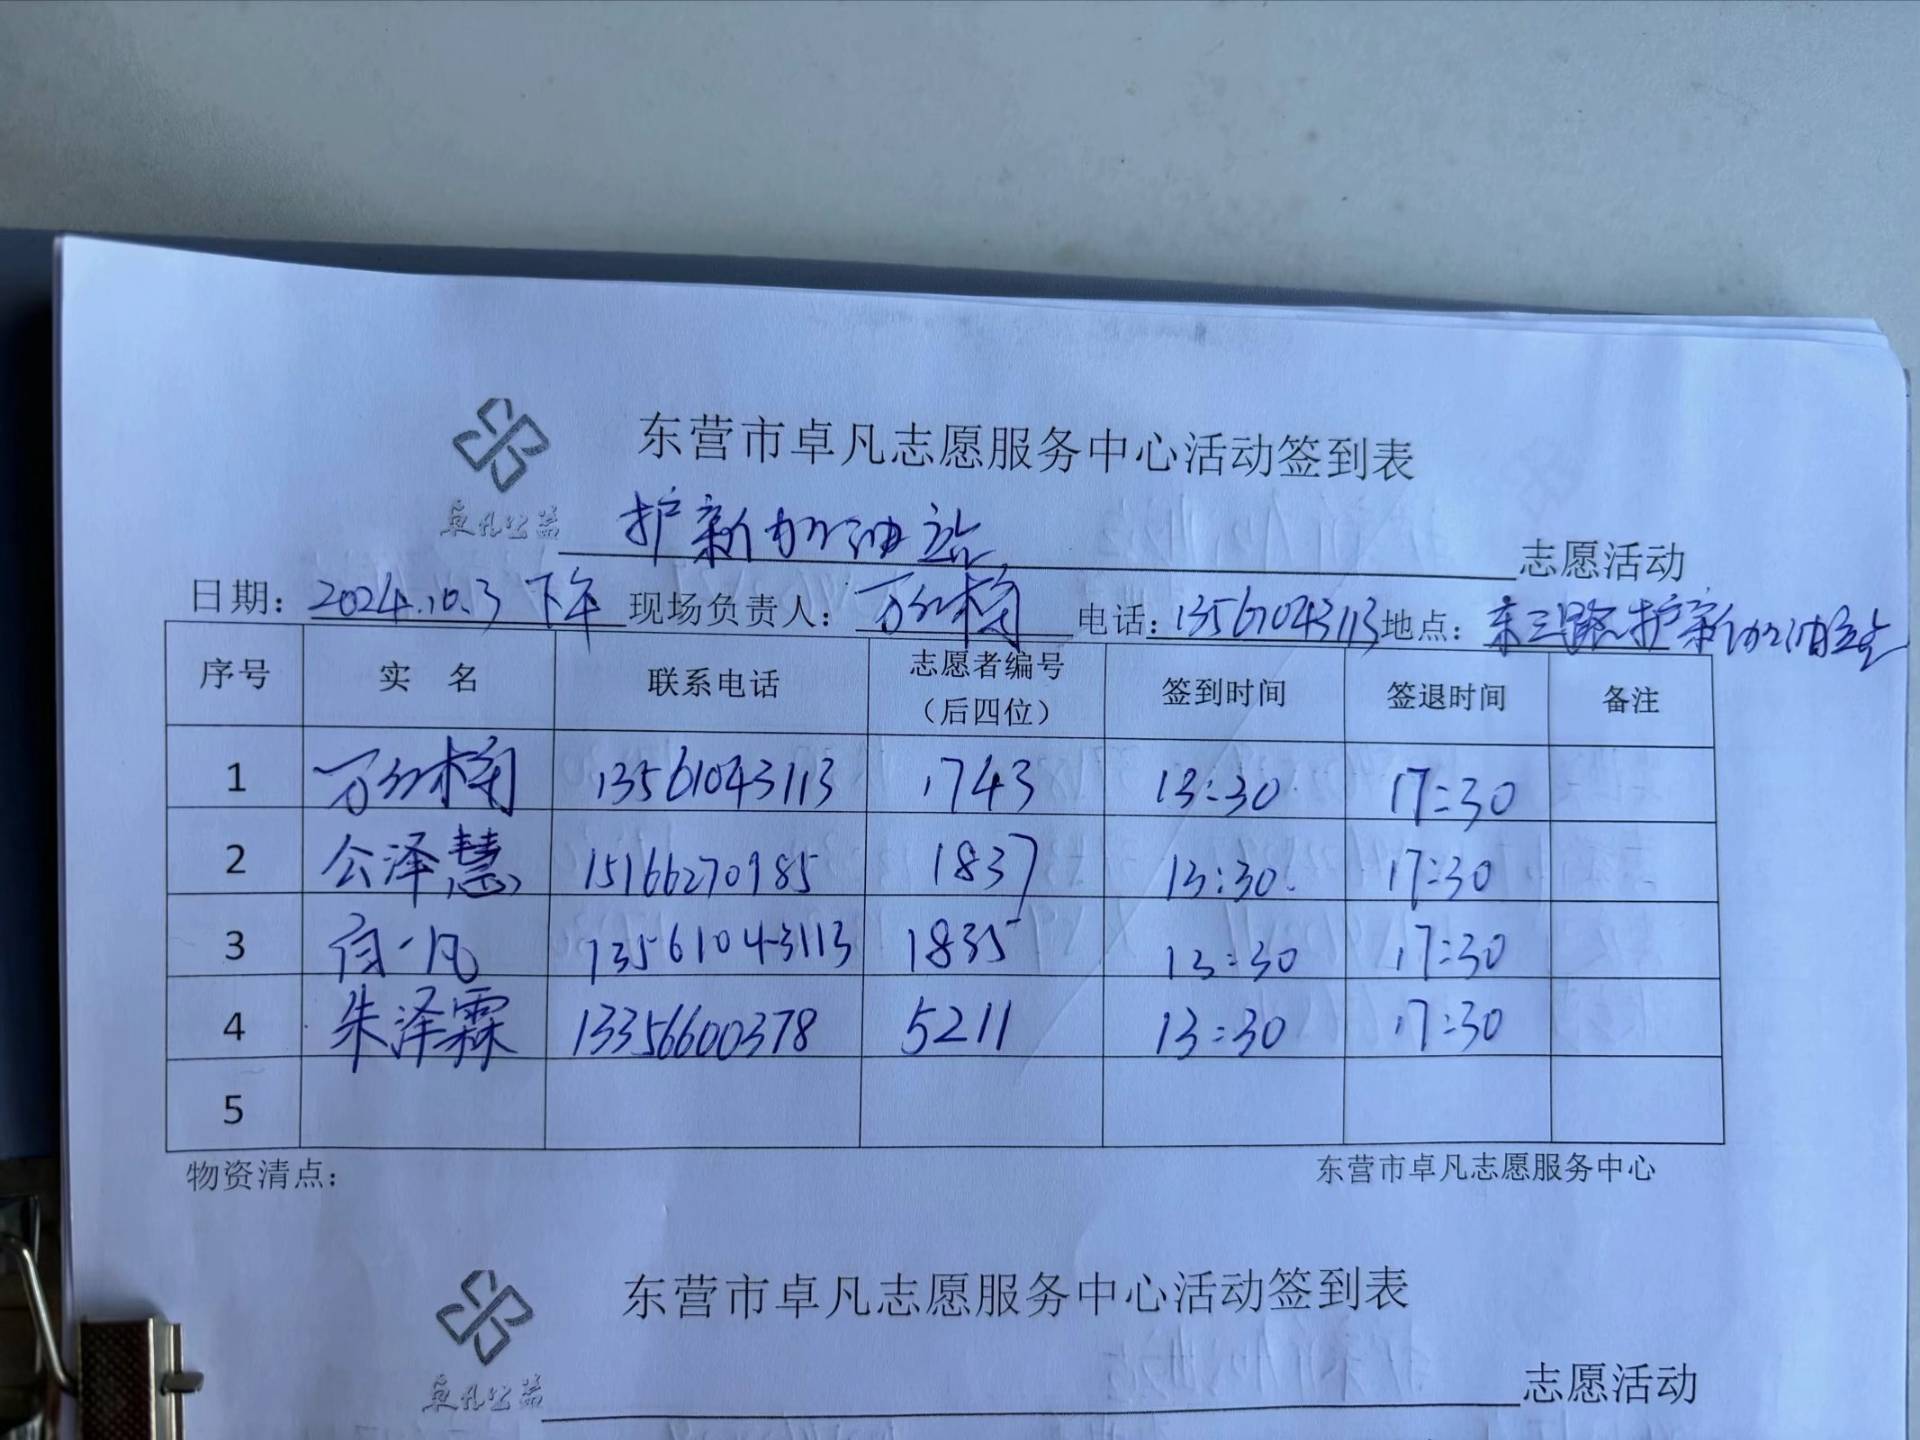 东营市卓凡志愿服务中心活动签到表
卓凡公益 护新加油站 志愿活动
日期：2024.10.3 下午 现场负责人：万红梅 电话：13561043113 地点：东三路护新加油站
序号 实 名 联系电话 志愿者编号（后四位） 签到时间 签退时间 备注
1 万红梅 13561043113 1743 13:30 17:30
2 公泽慧 15166270985 1837 13:30 17:30
3 白一凡 13561043113 1835 13:30 17:30
4 朱泽霖 13356600378 5211 13:30 17:30
5
物资清点： 东营市卓凡志愿服务中心
东营市卓凡志愿服务中心活动签到表
卓凡公益 志愿活动